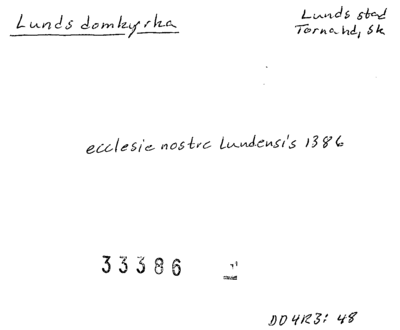 Lunds domkyrka
Lunds stad
Torna hd, Sk
ecclesie nostre Lundensis 1386
33386
DD4R3: 48